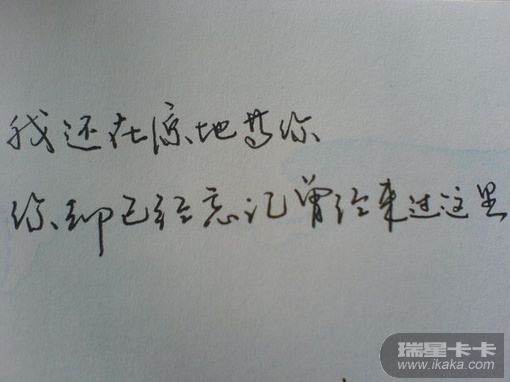 我还在原地等你
你却已经忘记曾经来过这里
瑞星卡卡
www.ikaka.com